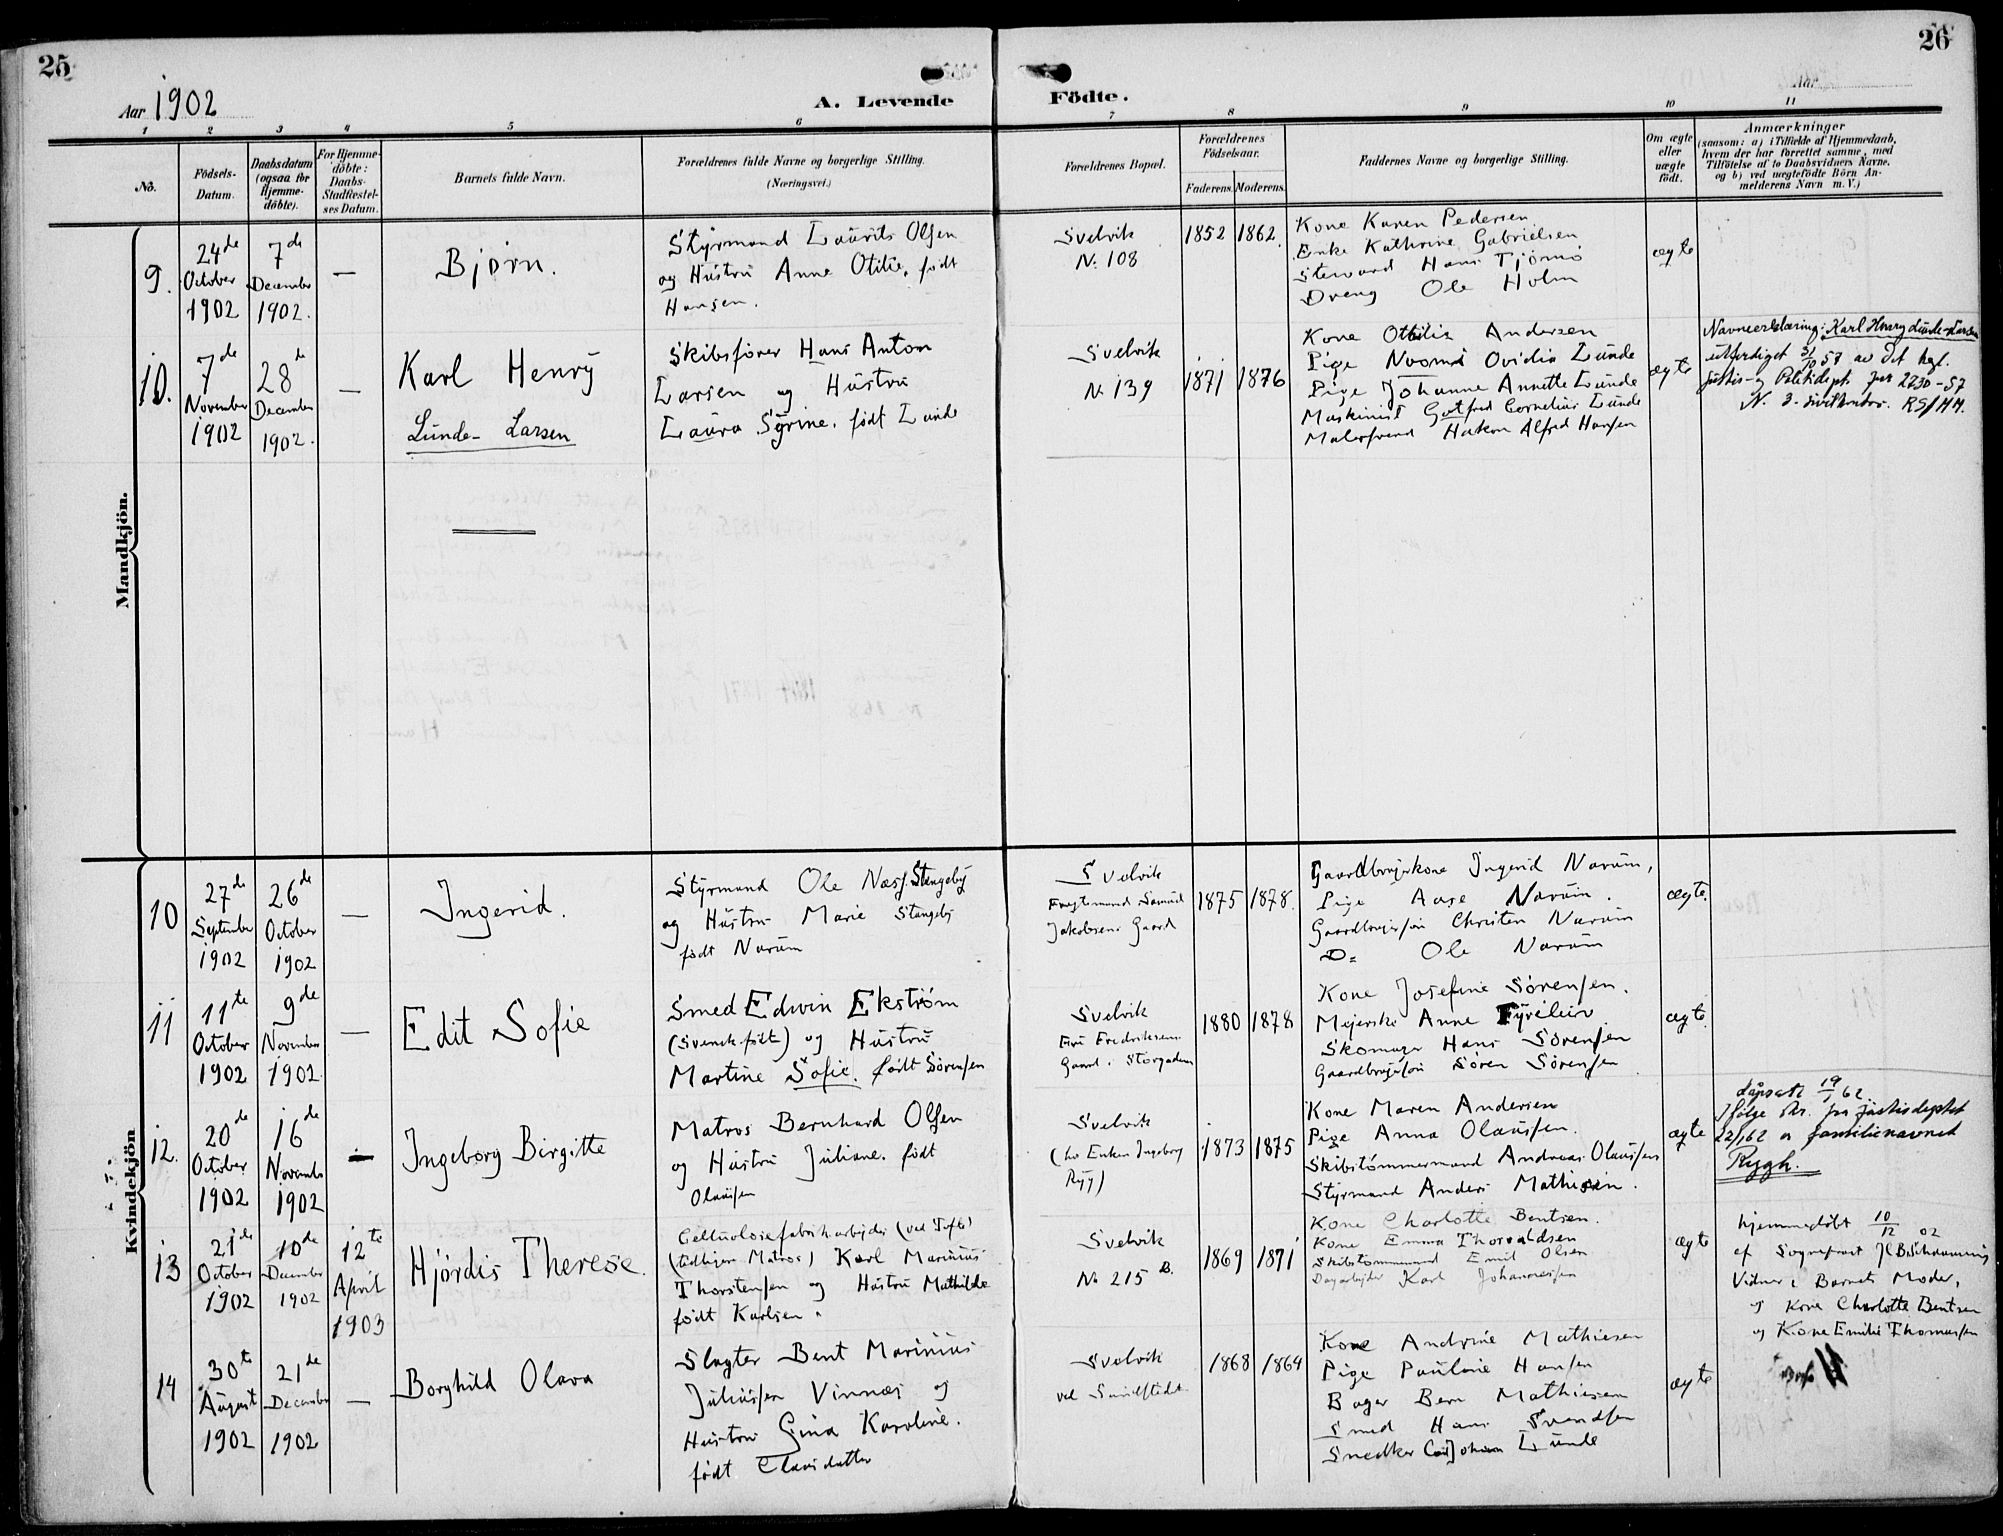 25
26
Aar 1902
A. Levende
Födte.
Aar
1 2 3 4 5 6 7 8 9 10 11
No.
Födsels-
Datum.
Daabsdatum
(ogsaa for
Hjemme-
döbte).
For Hjemme-
döbte:
Daabs-
Stadfæstel-
ses Datum.
Barnets fulde Navn.
Forældrenes fulde Navne og borgerlige Stilling.
(Næringsvei.)
Forældrenes Bopæl.
Forældrenes
Födselsaar.
Faderens.
Moderens.
Faddernes Navne og borgerlige Stilling.
Om ægte
eller
uægte
födt.
Anmærkninger
(saasom: a) i Tilfælde af Hjemmedaab,
hvem der har forrettet samme, med
Tilföielse af to Daabsvidners Navne.
og b) ved uægtefödte Börn An-
melderens Navn m. V.)
Mandkjön.
9.
24de
October
1902
7de
December
1902.
—
Bjørn.
Styrmand Laurits Olsen
og Hustru Anne Otilie, født
Hansen.
Svelvik
No 108
1852
1862.
Kone Karen Pedersen
Enke Kathrine Gabrielsen
Steward Hans Tjømø
Dreng Ole Holm
ægte
10.
7de
November
1902
28de
December
1902.
—
Karl Henry
Lunde-Larsen
Skibsfører Hans Anton
Larsen og Hustru
Laura Syrine, født Lunde
Svelvik
No 139
1871
1876
Kone Othilia Andersen
Pige Noomi Ovidia Lunde
Pige Johanne Annette Lunde
Maskinist Gotfred Cornelius Lunde
Malersvend Hakon Alfred Hansen
ægte
Navneerklæring: Karl Henry Lunde-Larsen
utferdiget 31/10 57 av Det kgl.
Justis- og Politidept. jnr 2230-57
N. 3. sivilkontor. RS/HM.
Kvindekjön
10
27de
September
1902
26de
October
1902
—
Ingerid.
Styrmand Ole Næss Stangeby
og Hustru Marie Stangeby
født Narum
Svelvik
Fragtemand Samuel
Jakobsens Gaard
1875
1878.
Gaardbrugerkone Ingerid Narum,
Pige Aase Narum.
Gaardbrugersøn Christen Narum
Do Ole Narum
ægte.
11
11te
October
1902
9de
November
1902.
—
Edit Sofie
Smed Edwin Ekstrøm
(svenskfødt) og Hustru
Martine Sofie. født Sørensen
Svelvik
Fru Fredriksens
Gaard i Storgaden
1880
1878
Kone Josefine Sørensen.
Mejerske Anne
Skomager Hans Sørensen
Gaardbrugersøn Søren Sørensen
ægte.
12.
20de
October
1902
16de
November
1902
—
Ingeborg Birgitte
Matros Bernhard Olsen
og Hustru Juliane, født
Olausen
Svelvik
(hos Enken Ingeborg
Ryg)
1873
1875
Kone Maren Andersen
Pige Anna Olaussen.
Skibstømmermand Andreas Olaussen
Styrmand Anders Mathisen.
ægte
Dåpsatt. 19/1 62.
Ifølge skr. fra justisdeptet
22/1 62 er familienavnet
Rygh.
13
21de
October
1902
10de
December
1902
12te
April
1903
Hjørdis Therese.
Cellulosefabrikarbejder (ved Tofte)
(tidligere Matros) Karl Marinius
Thorstensen og Hustru Mathilde
født Karlsen.
Svelvik
No 215 B.
1869
1871
Kone Charlotte Bentsen.
Kone Emma Thorvaldsen
Skibstømmermand Emil Olsen
Dagarbejder Karl Johannesen
ægte
hjemmedøbt 10/12 02
af Sogneprest
Vidner: Barnets Moder,
og Kone Charlotte Bentsen
og Kone Emilie Thomassen
14
30te
August
1902
21de
December
1902
—
Borghild Olava
Slagter Bent Marinius
Juliussen Vinnæs og
Hustru Gina Karoline.
født Clausdatter
Svelvik
ved Sundstedt
1868
1864
Kone Andrine Mathiesen
Pige Pauline Hansen
Bager Bern Mathiesen
Smed Hans Svendsen
Snedker Carl Johan Lunde
ægte